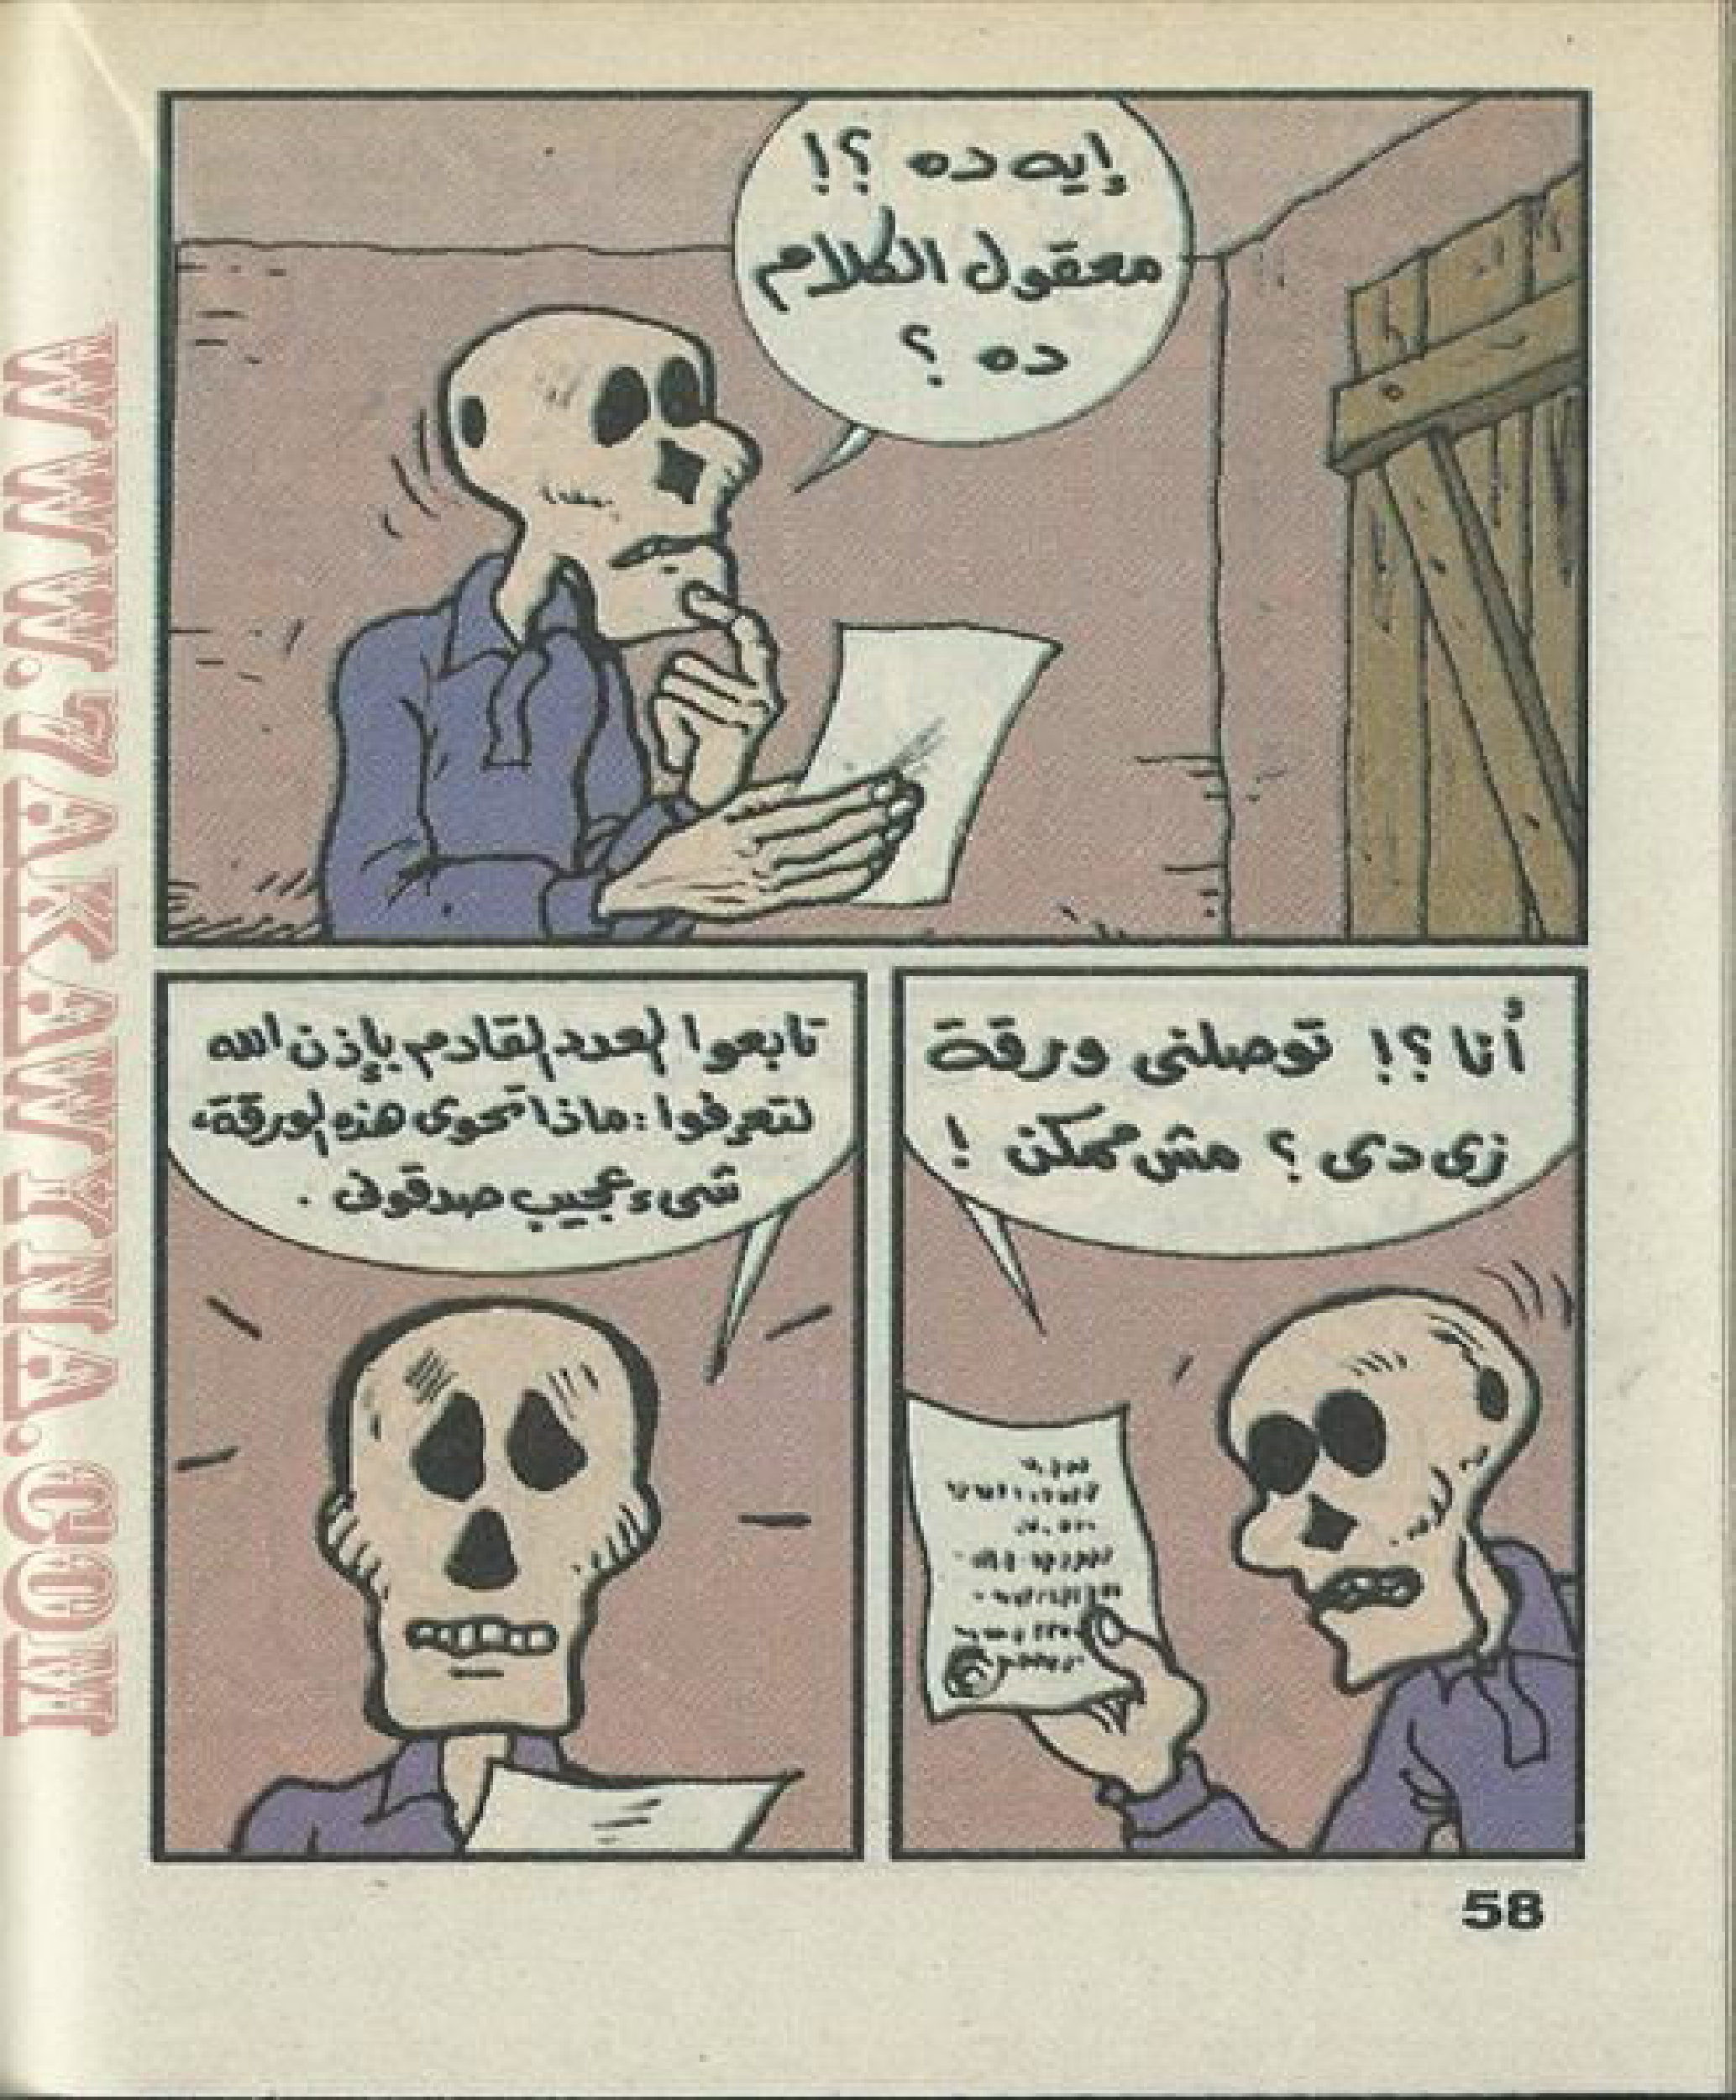 إيه ده ؟!
معقول الكلام
ده ؟
أنا ؟! توصلنى ورقة
زى دى ؟ مش ممكن !
تابعوا العدد القادم بإذن الله
لتعرفوا : ماذا تحوى هذه الورقة،
شىء عجيب صدقونى .
58
WWW.7AKAWITNA.COM